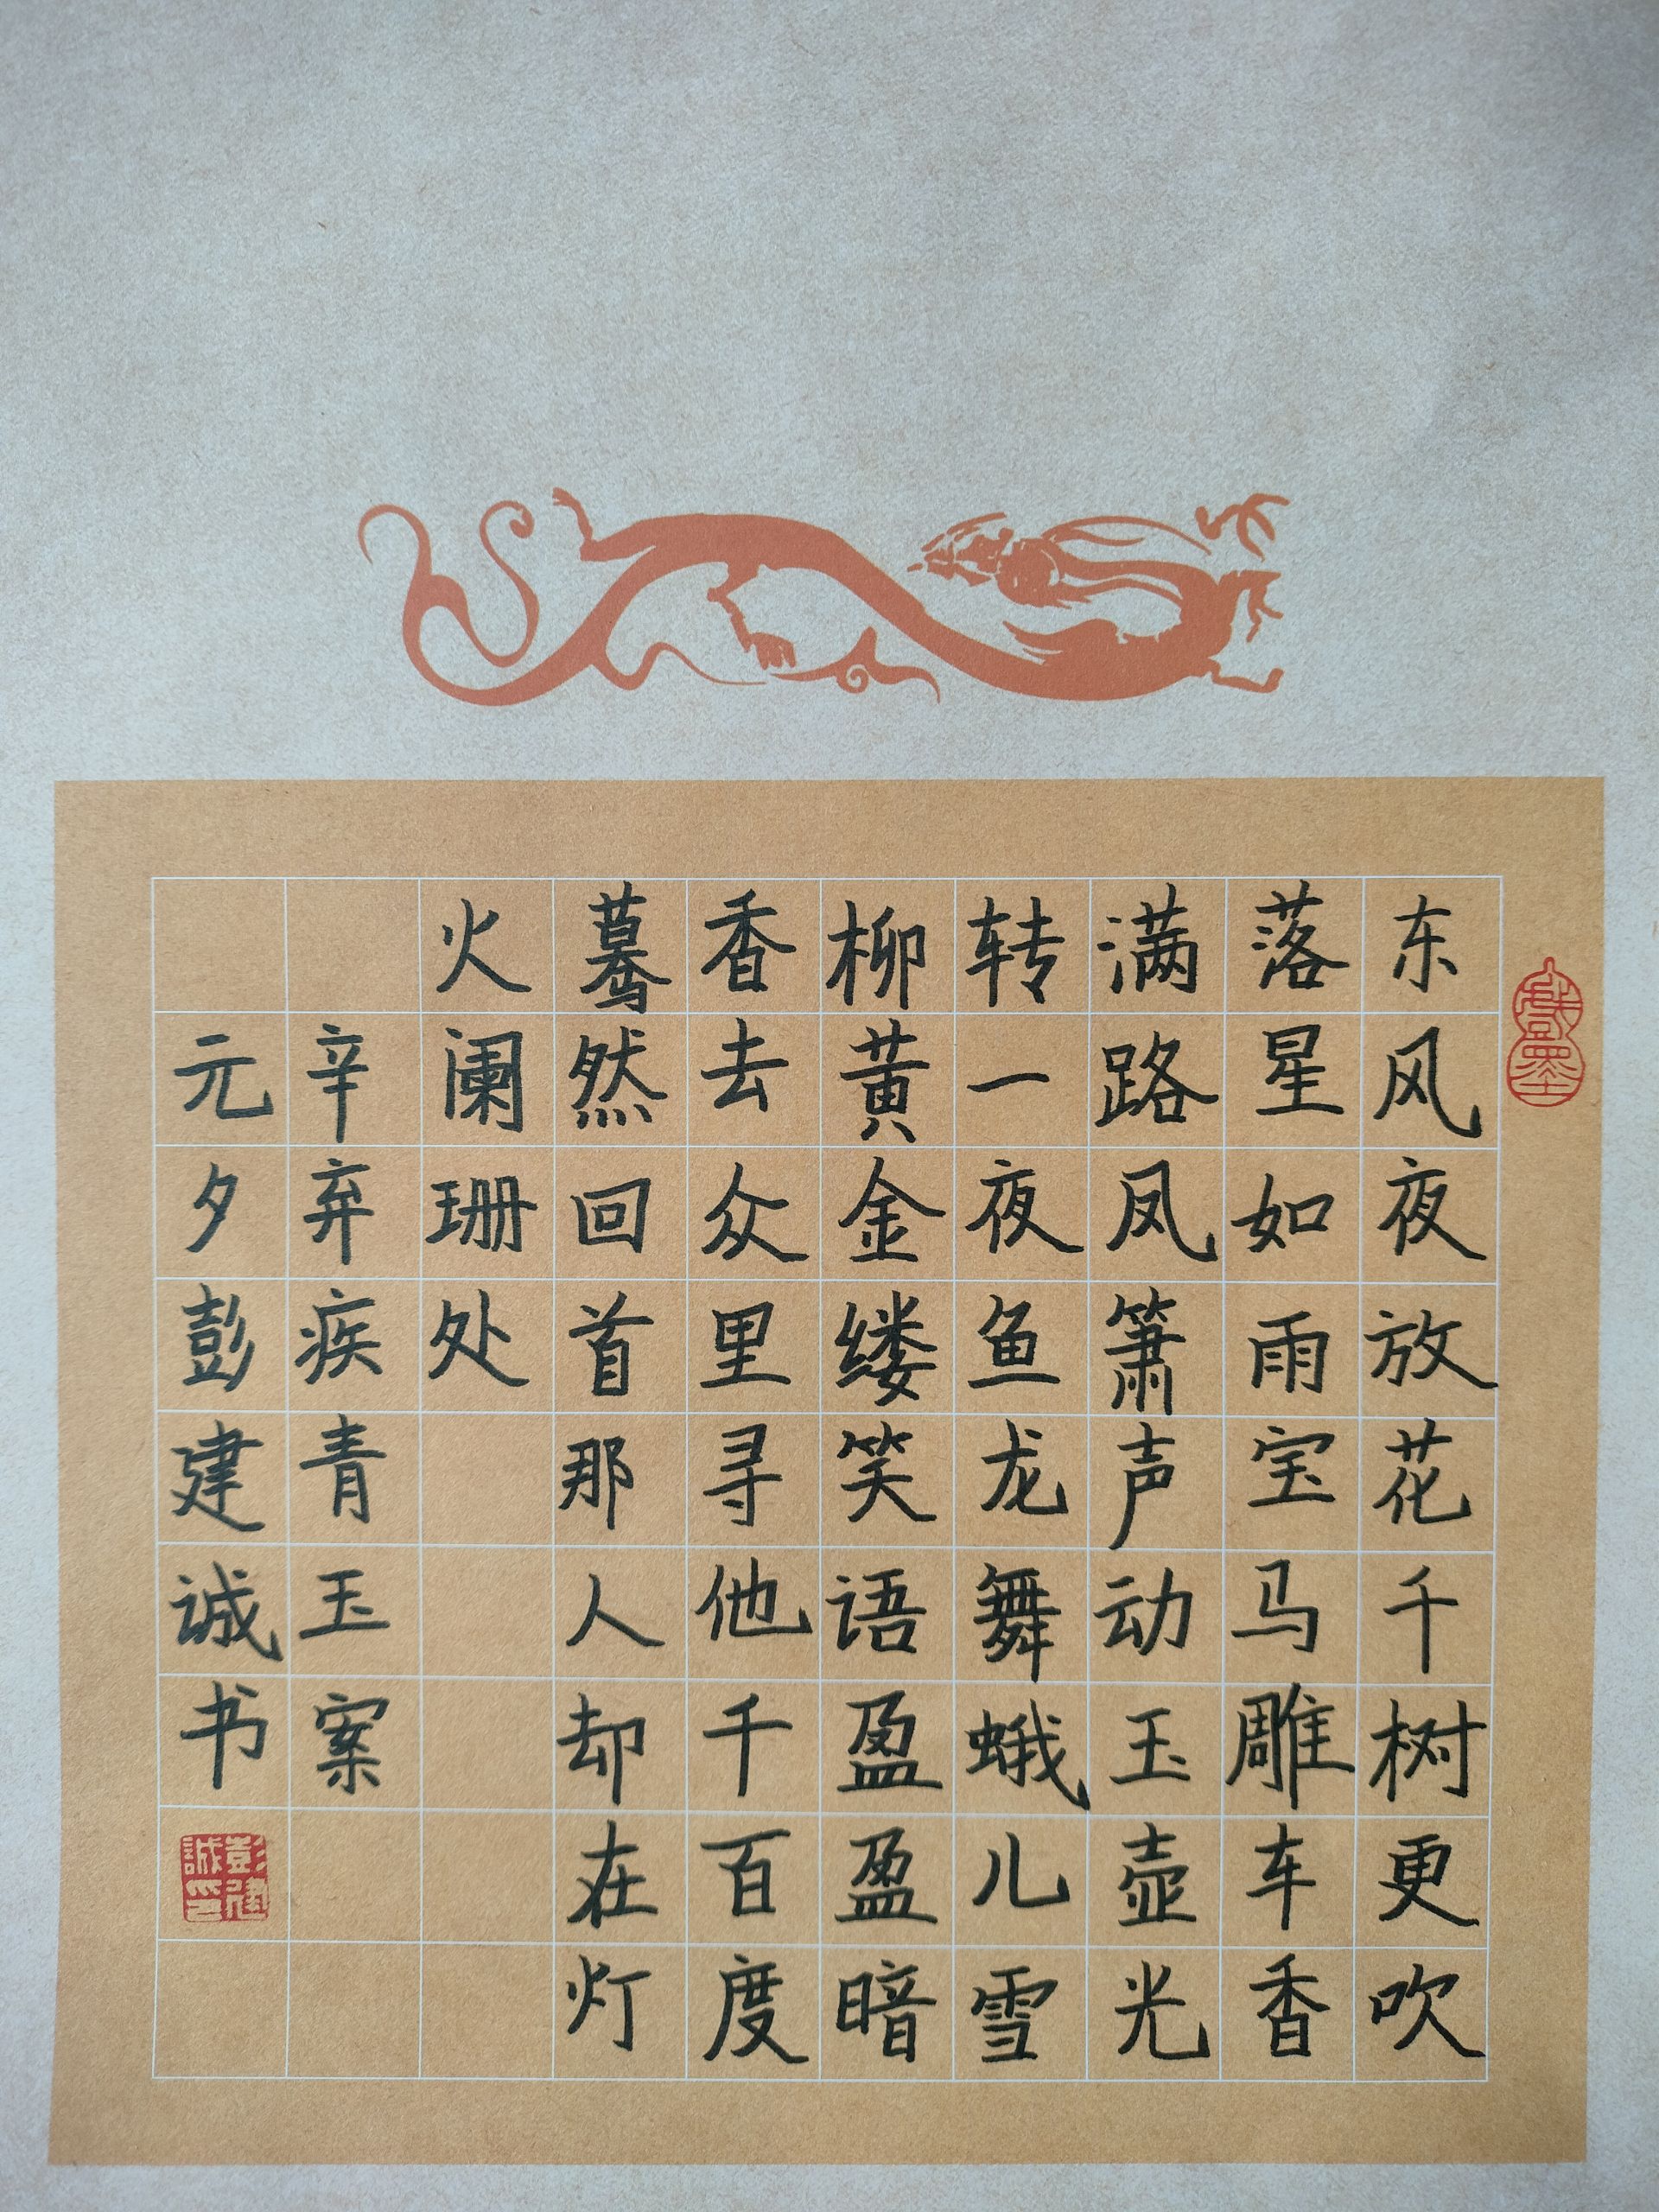 东风夜放花千树更吹
落星如雨宝马雕车香
满路凤箫声动玉壶光
转一夜鱼龙舞蛾儿雪
柳黄金缕笑语盈盈暗
香去众里寻他千百度
蓦然回首那人却在灯
火阑珊处
辛弃疾青玉案
元夕彭建诚书
彭建誠印